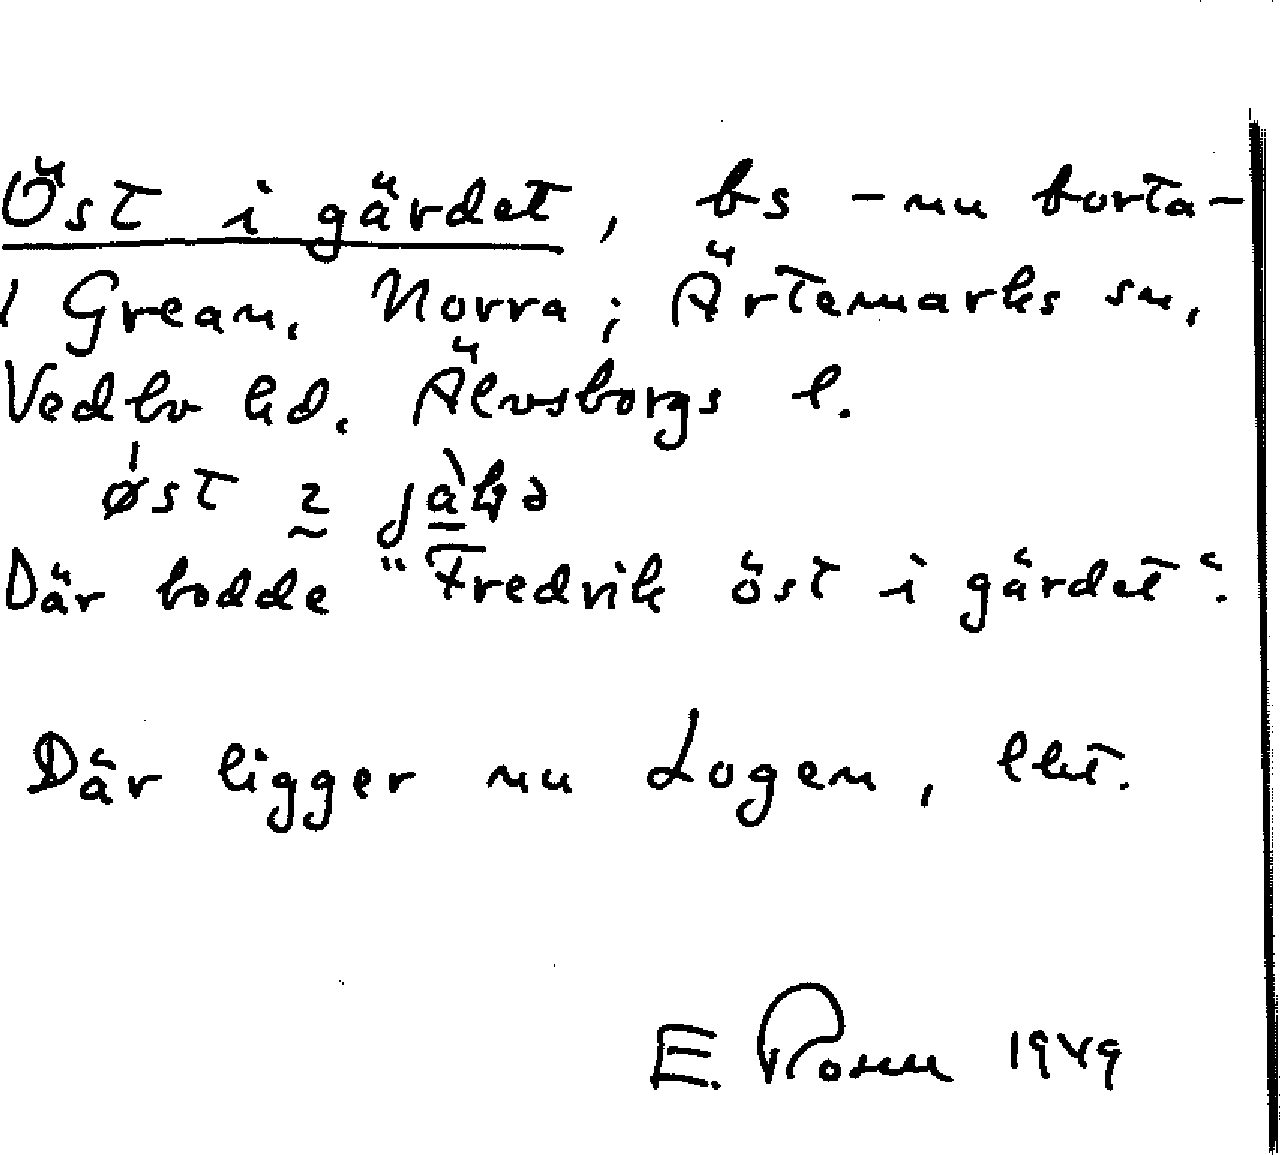 Öst i gärdet, bs - nu borta -
/ Grean, Norra; Ärtemarks sn,
Vedbo hd. Älvsborgs l.
Där bodde "Fredrik öst i gärdet".
Där ligger nu Logen, lht.
E. Rosell 1949